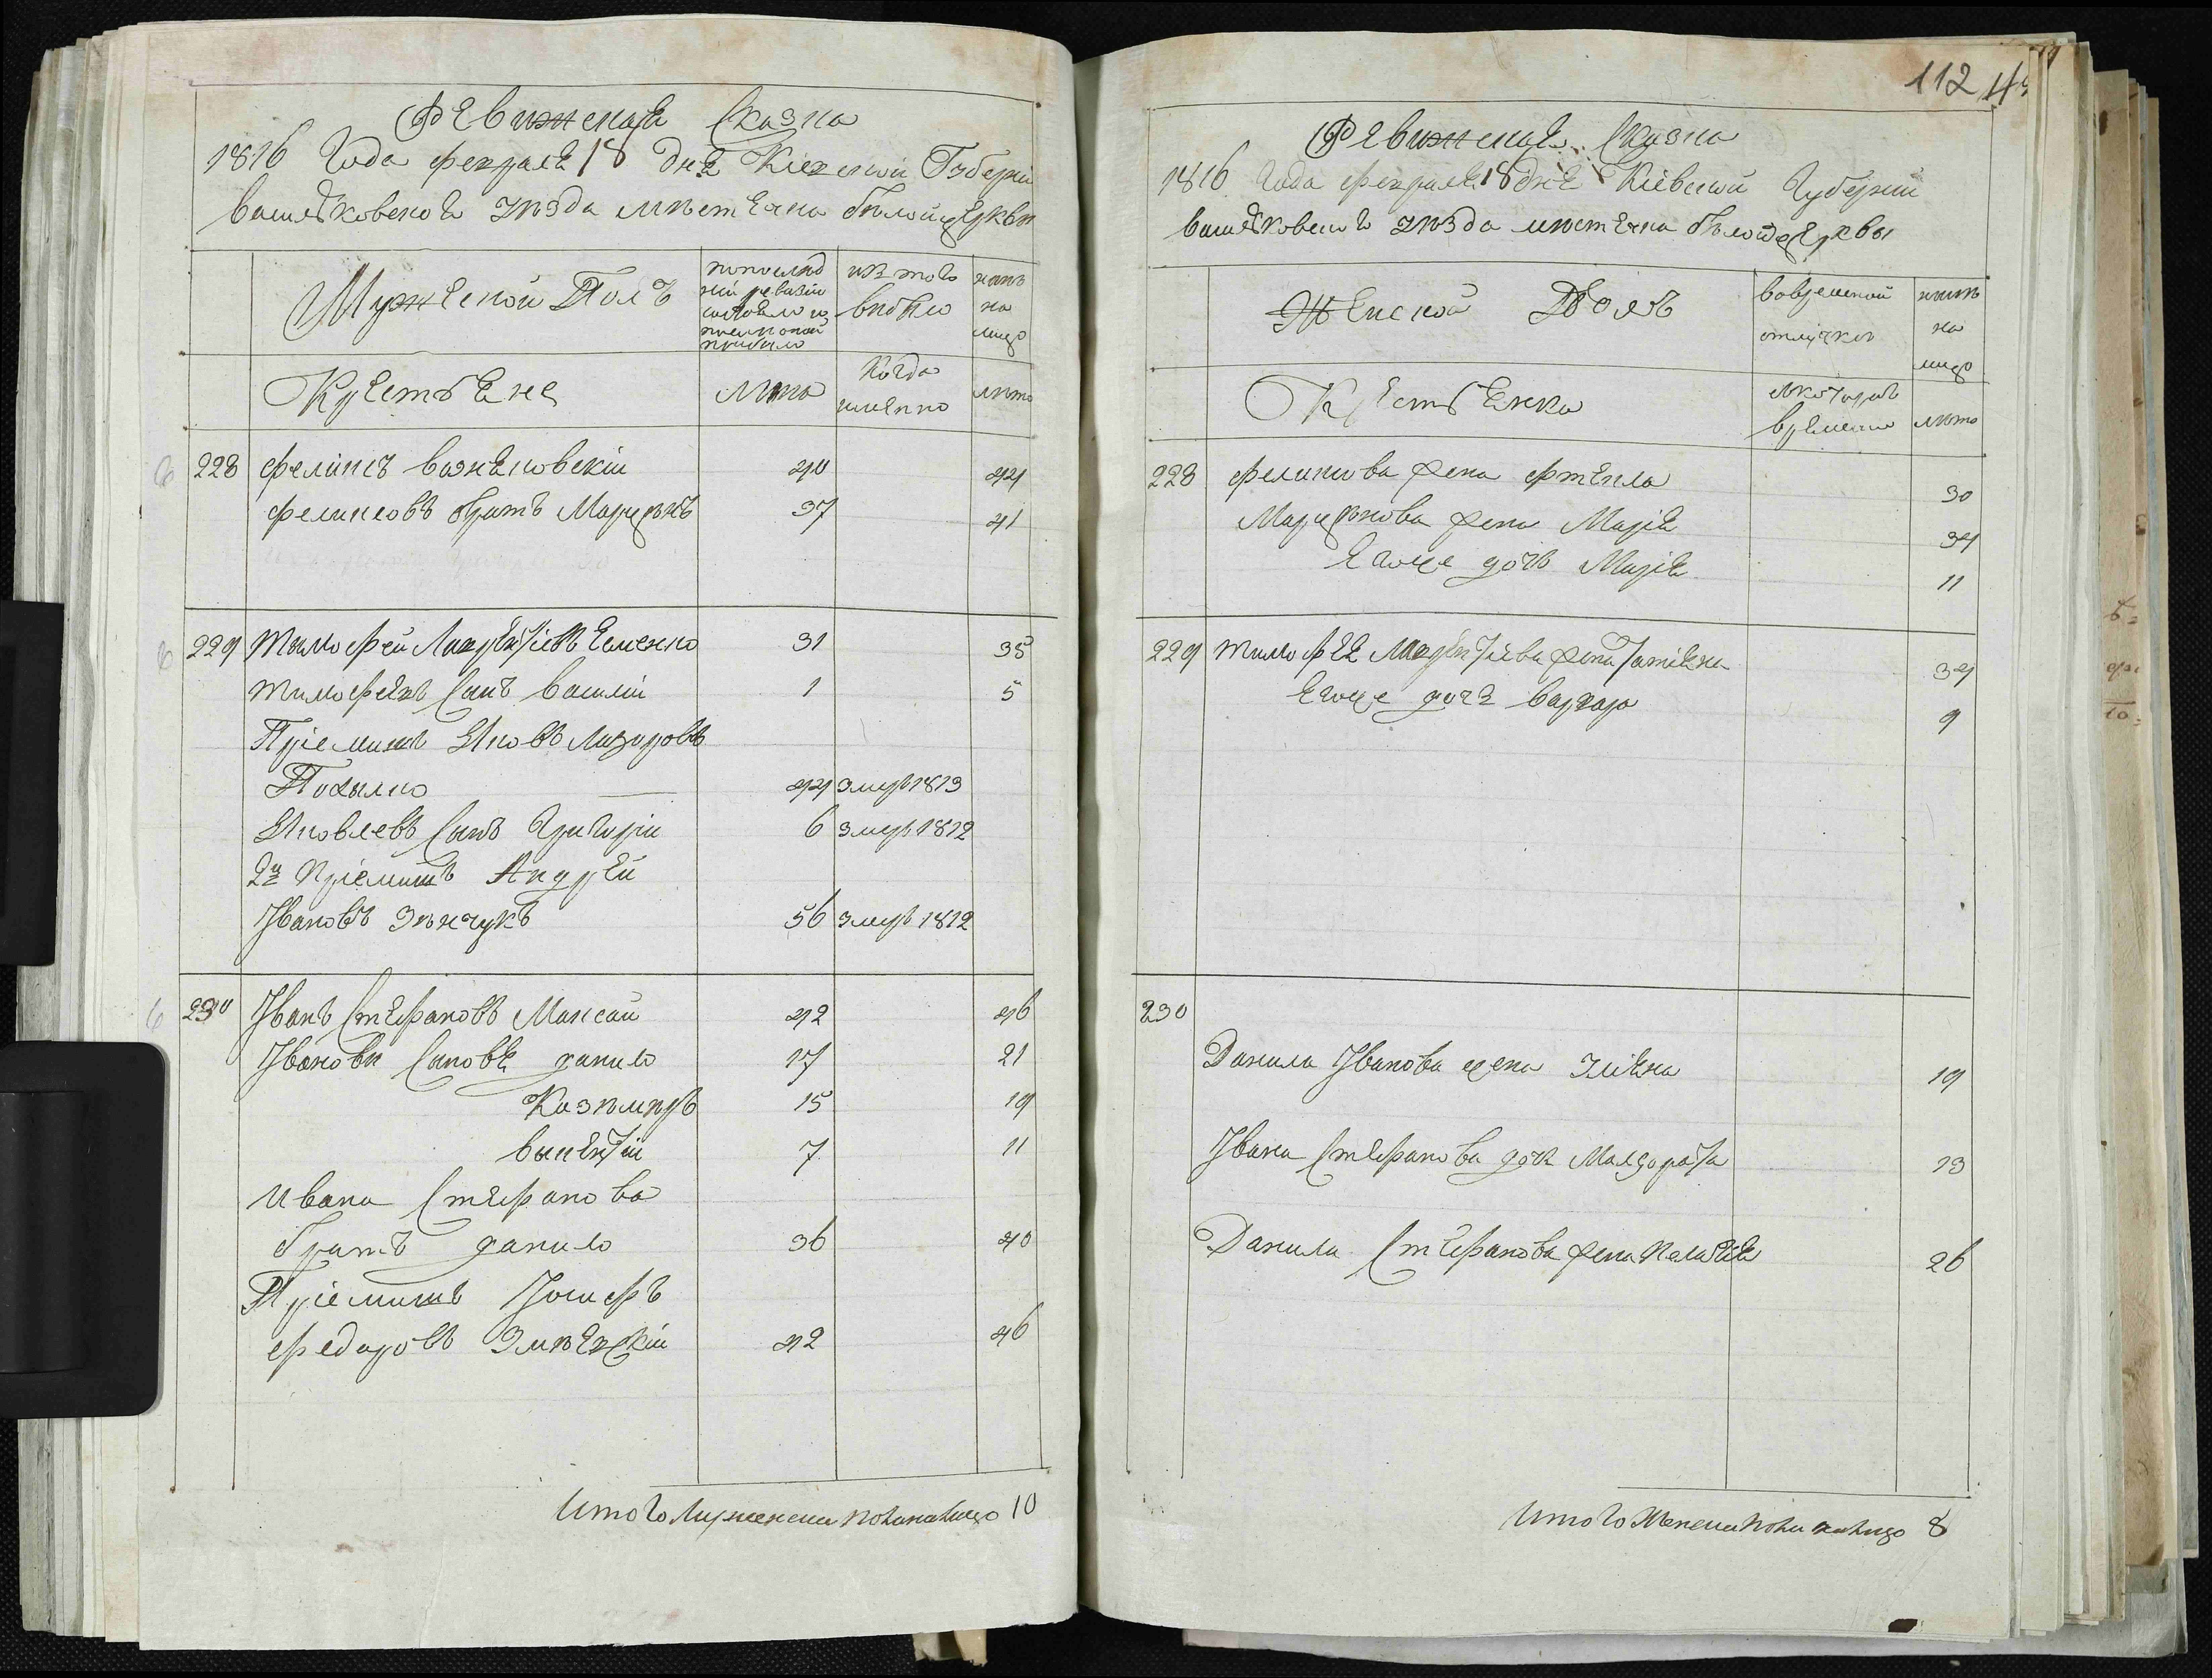 Ревижская Сказка
1816 Года февраля 18 дня Кіевской Губерніи
васильковского уезда местечка белойцеркви
Мужеской Полъ
попослед
ней ревизіи
состояло и
после оной
прибыло
изъ того
выбыло
нынѣ
на
лицо
Крестьяне
Лѣта
Когда
именно
лѣта
228 Феликсъ вазнековскій 40 44
Феликсовъ братъ Марцѣнъ 37 41
229 Тимофей Лаврентіевъ 31 35
Тимофеявъ Сынъ василій 1 5
Пріемышъ Яковъ Лазаровъ
Похылко 44 умеръ 1813
Яковлевъ Сынъ Григорій 6 умеръ 1812
2й Пріемышъ Андрей
Ивановъ Зѣнчукъ 56 умеръ 1812
230 Иванъ Стефановъ Максай 42 46
Ивановы Сыновя данило 17 21
Казимиръ 15 19
викентій 7 11
Ивана Стефанова
братъ данило 36 40
Пріемышъ Іосифъ
Федоровъ 42 46
Итого Мужеска пола налицо 10
112
Ревижская Сказка
1816 Года февраля 18 дня Кіевской Губерніи
васильковского уезда местечка белойцерквы
Женской Полъ
вовременной
отлучки
нынѣ
на
лицо
Крестьянка
скоторого
времени
лѣта
228 Феликсова жена 30
Марцѣнова жена Марія 34
Еяоже дочь Марія 11
229 Тимофея Лаврентіева жена Татіяна 34
Егоже дочь варвара 9
230
Данила Иванова жена Уліяна 19
Ивана Стефанова дочь Малгората 13
Данила Стефанова жена Пелагія 26
Итого Женска пола налицо 8